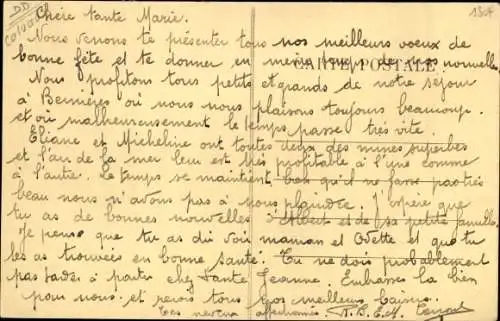 DD
1505
Chère tante Marie.
Nous venons te présenter tous nos meilleurs voeux de
bonne fête et te donner en même temps de nos nouvelles
CARTE POSTALE
Nous profitons tous petits et grands de notre séjour
à Bernières où nous nous plaisons toujours beaucoup
et où malheureusement le temps passe très vite.
Eliane et Micheline ont toutes deux des mines superbes
et l'air de la mer leur est très profitable à l'une comme
à l'autre. Le temps se maintient, bas qu'il ne fasse pas très
beau nous n'avons pas à nous plaindre. J'espère que
tu as de bonnes nouvelles d'Albert et de sa petite famille.
Je pense que tu as dû voir maman et Odette et que tu
les as trouvées en bonne santé. Tu ne dois probablement
pas tarder à partir chez tante Jeanne. Embrasse la bien
pour nous. et reçois tous nos meilleurs baisers.
Tes neveux affectionnés